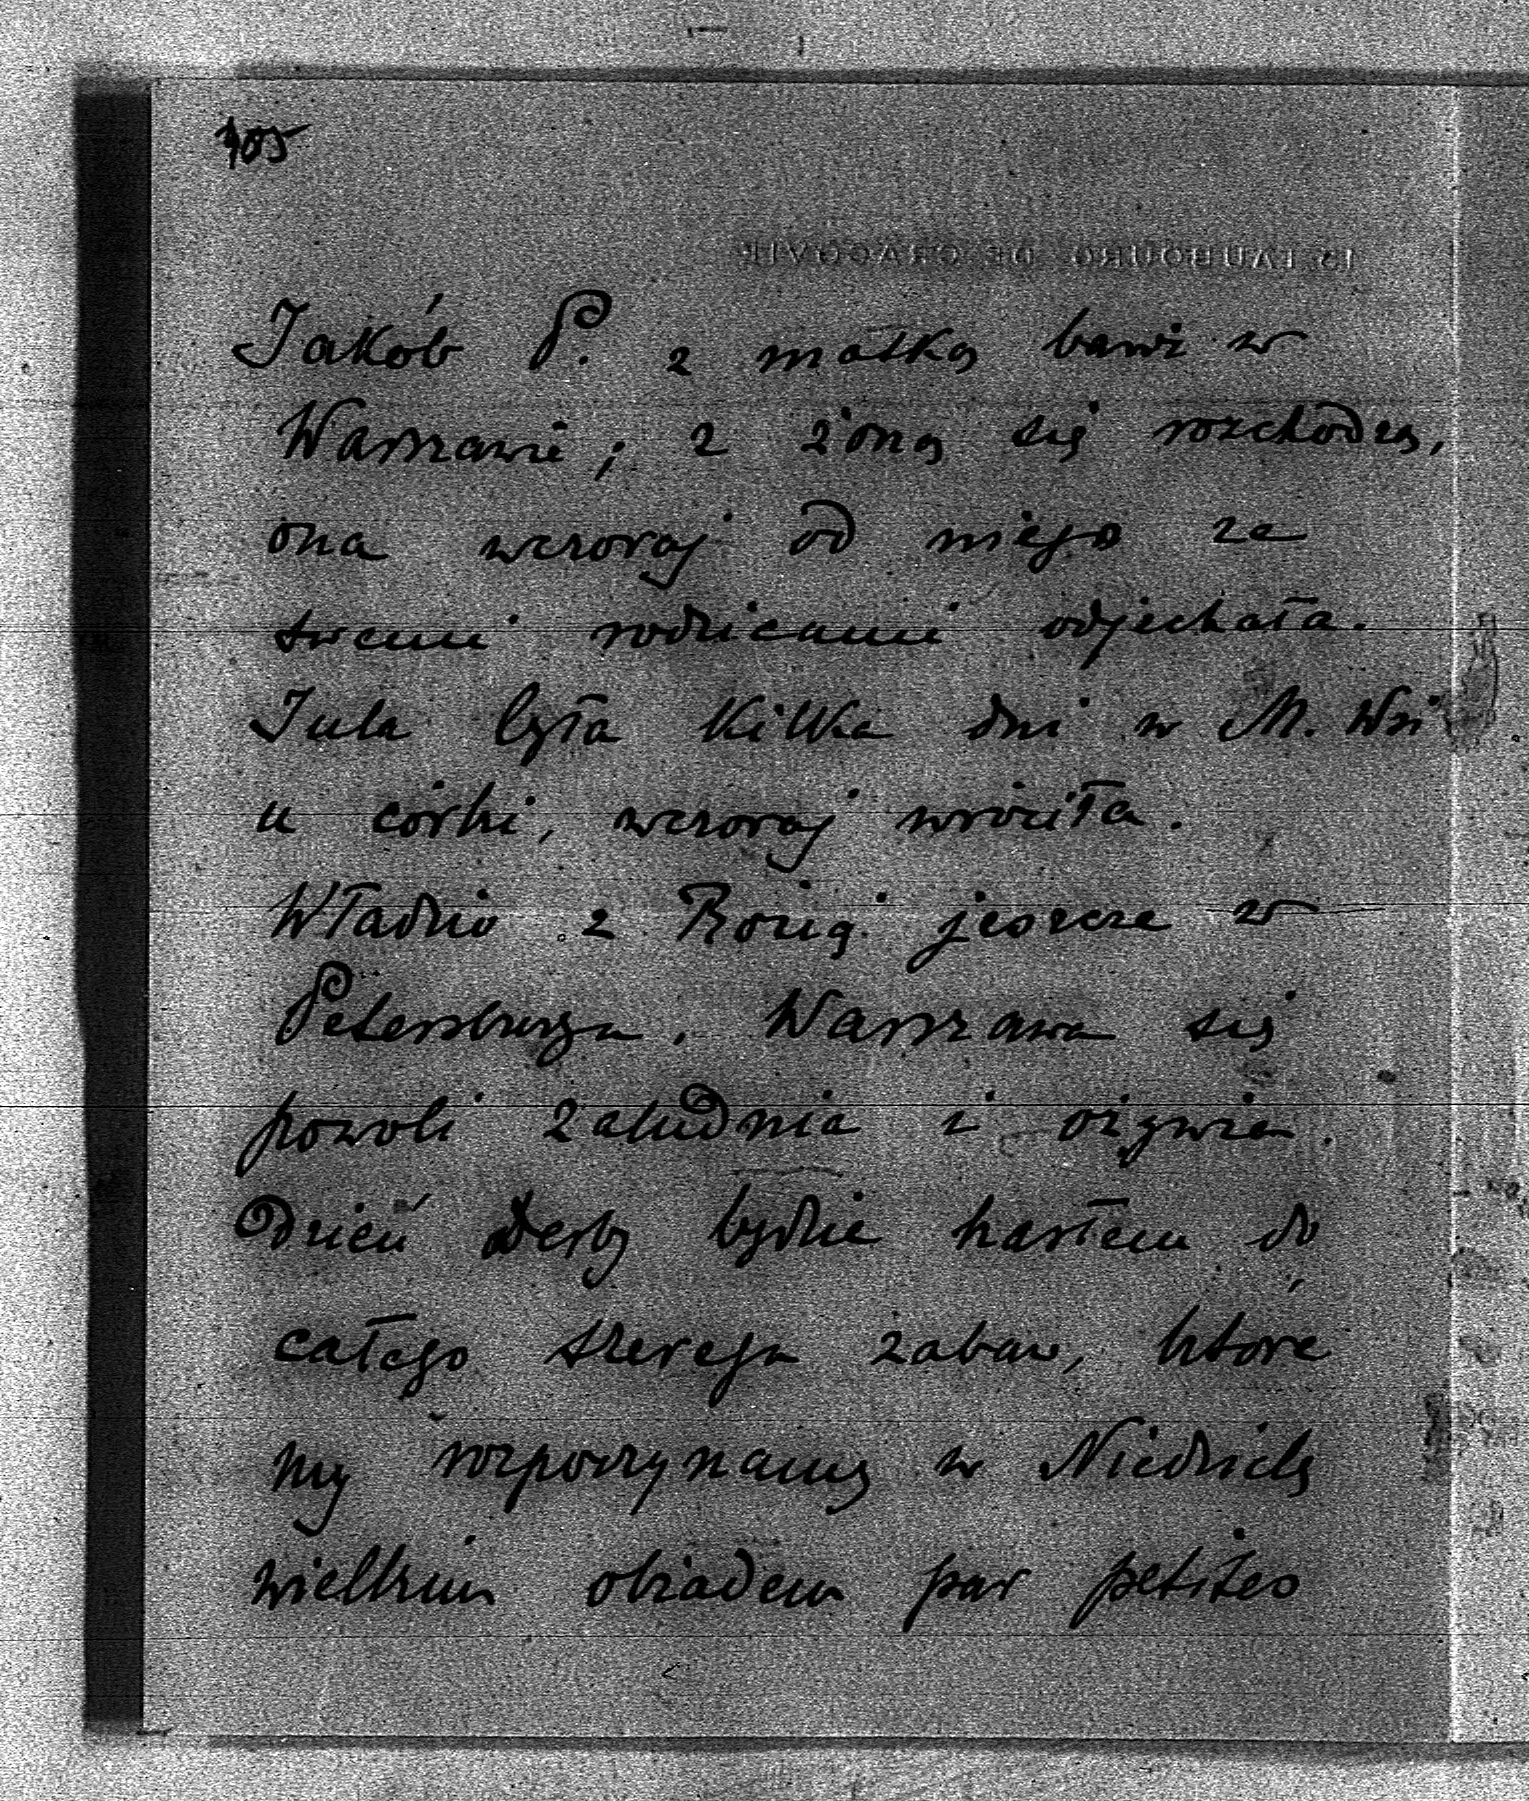 105
15 FAUBOURG DE CRACOVIE
Jakób P. z matką bawi w
Warszawie; z żoną się rozchodzą,
ona wczoraj od niego ze
swemi rodzicami odjechała.
Jula była kilka dni w M. Wsi
u córki, wczoraj wróciła.
Władzio z Rózią jeszcze w
Petersburgu. Warszawa się
powoli zaludnia i ożywia.
Dzień Derby będzie hasłem do
całego szeregu zabaw, które
my rozpoczynamy w Niedzielę
wielkim obiadem par petites